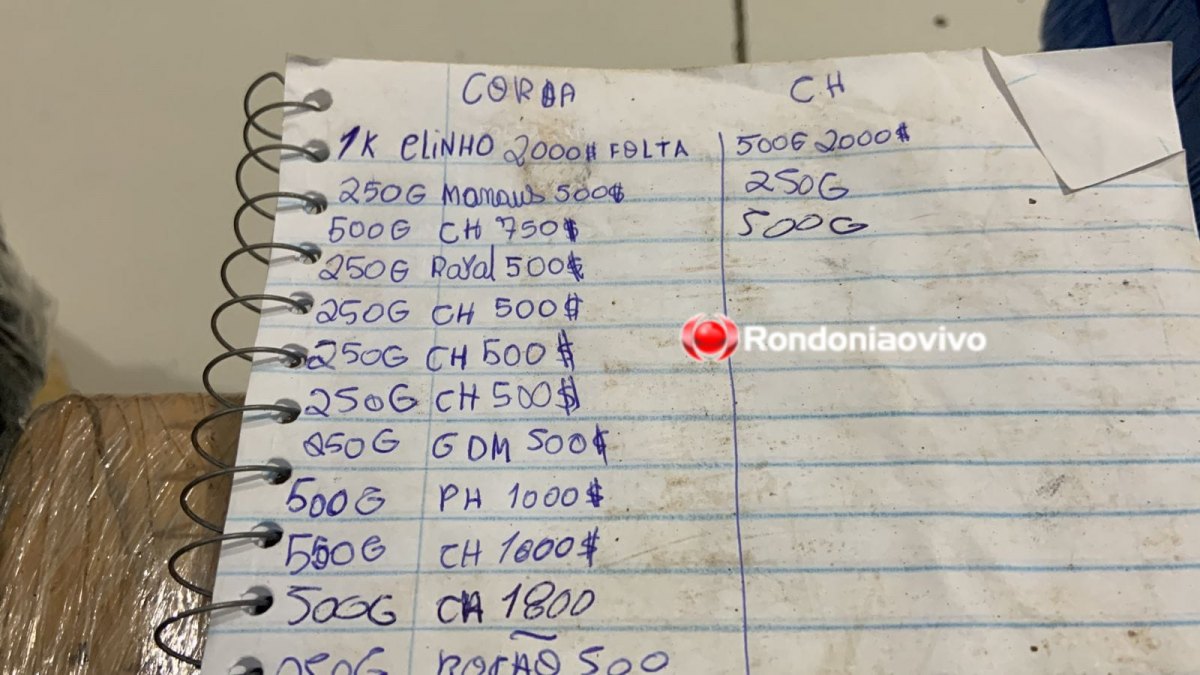 COROA
CH
1K ELINHO 2000$ FOLTA
500G 2000$
250G Manaus 500$
250G
500G CH 750$
500G
250G Raral 500$
250G CH 500$
Rondoniaovivo
250G CH 500$
250G CH 500$
250G GDM 500$
500G PH 1000$
500G CH 1000$
500G CH 1800
250G 500